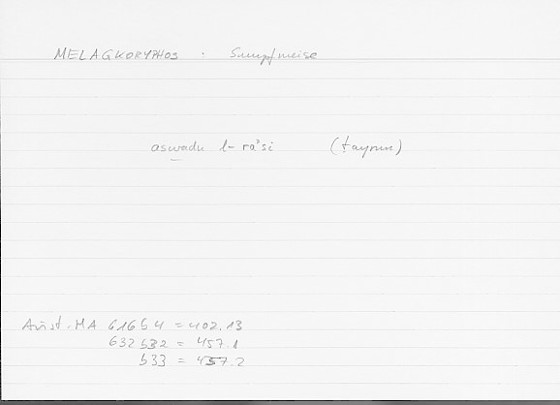 MELAGKORYPHOS · Sumpfmeise
aswadu l-ra'si (ṭayrun)
Arist. HA 616b4 = 402.13
632b32 = 457.1
b33 = 457.2